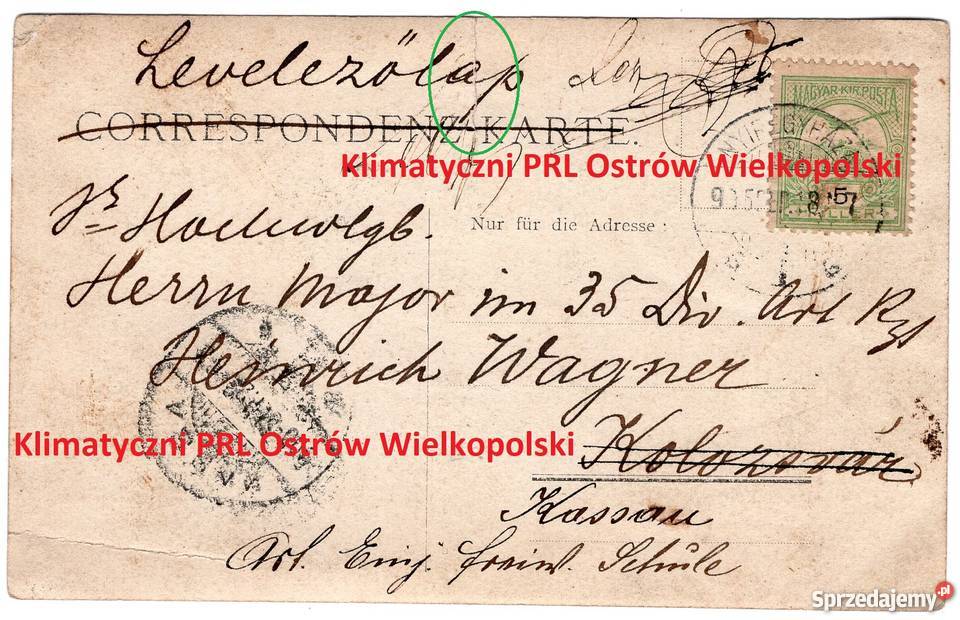 Levelezőlap
CORRESPONDENZ-KARTE.
MAGYAR·KIR·POSTA
Klimatyczni PRL Ostrów Wielkopolski
5
Nur für die Adresse:
Hochwlgb.
Herrn Major im 35 Div. Art Rgt
Heinrich Wagner
Klimatyczni PRL Ostrów Wielkopolski
Kolozsvár
Kassau
Art. Einj. freiw. Schule
Sprzedajemy.pl